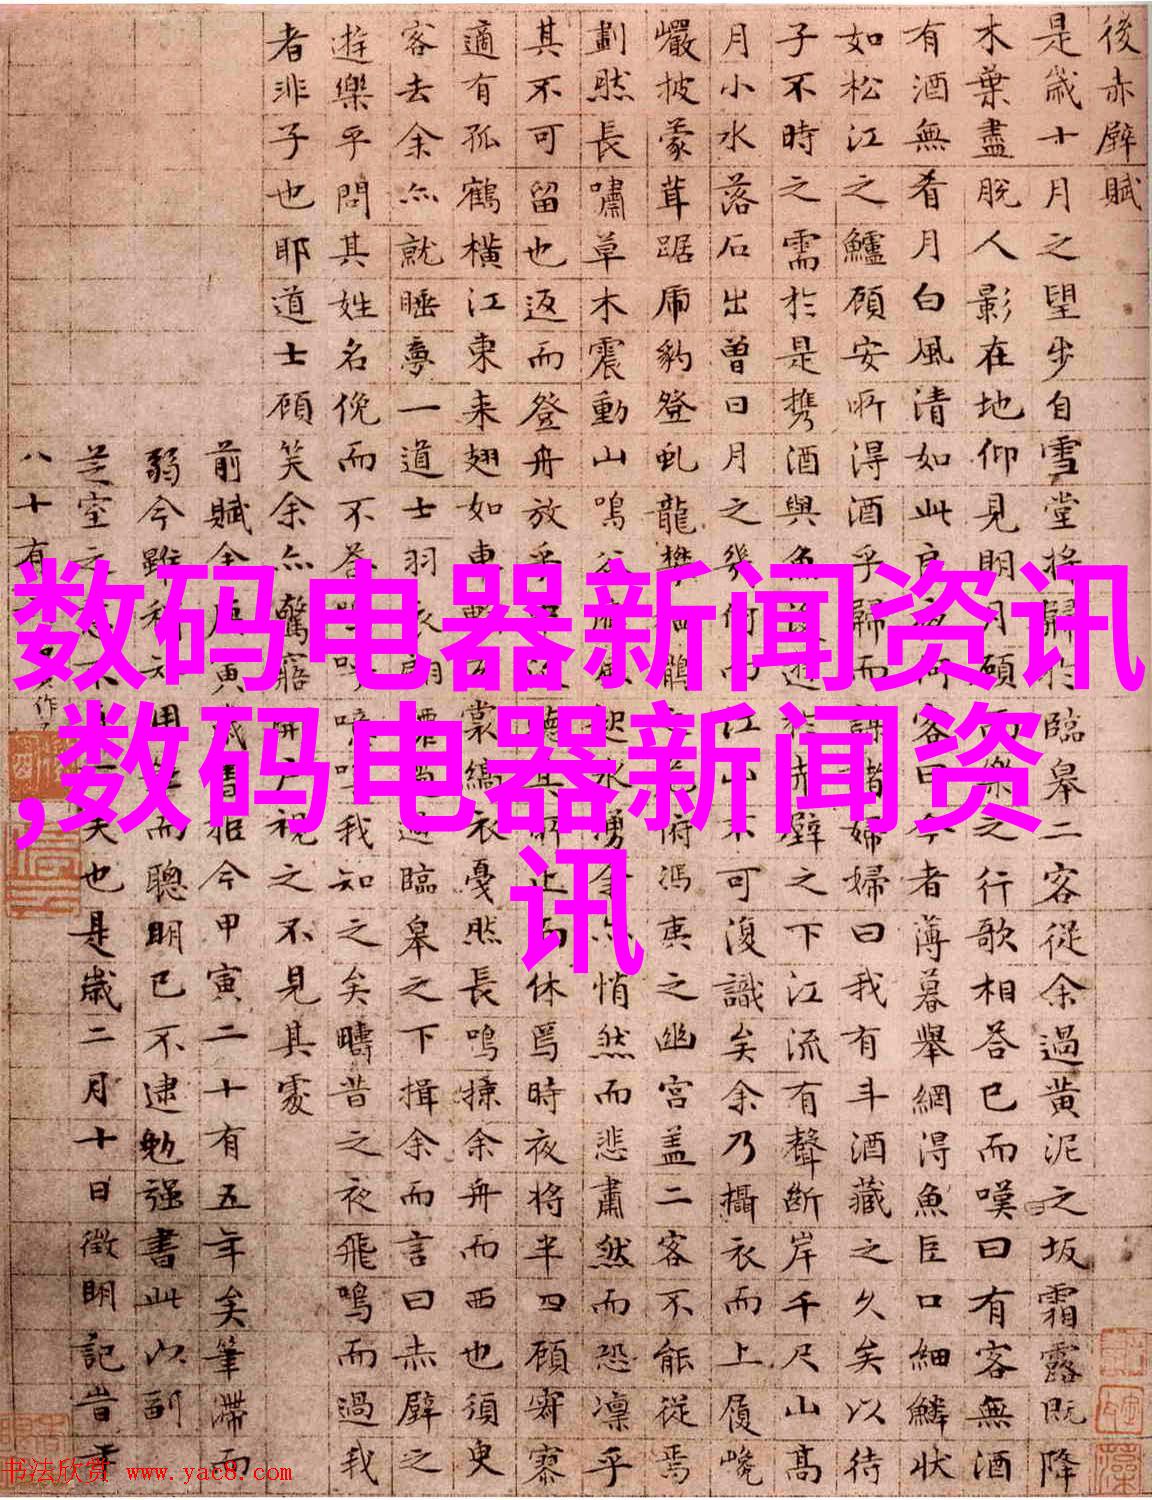 後赤壁賦
是歲十月之望步自雪堂將歸於臨皋二客從余過黄泥之坂霜露既降
木葉盡脱人影在地仰見明月顧而樂之行歌相答已而嘆曰有客無酒
有酒無肴月白風清如此良夜何客曰今者薄暮舉網得魚巨口細鱗狀
如松江之鱸顧安所得酒乎歸而謀諸婦婦曰我有斗酒藏之久矣以待
子不時之需於是携酒與魚復遊於赤壁之下江流有聲斷岸千尺山高
月小水落石出曾日月之幾何而江山不可復識矣余乃攝衣而上履巉
巖披蒙茸踞虎豹登虬龍攀栖鶻之危俯馮夷之幽宮蓋二客不能從焉
劃然長嘯草木震動山鳴谷應風起水湧余亦悄然而悲肅然而恐凛乎
其不可留也返而登舟放乎中流聽其所止而休焉時夜将半四顧寂寥
適有孤鶴横江東来翅如車輪玄裳縞衣戞然長鳴掠余舟而西也須臾
客去余亦就睡夢一道士羽衣翩躚過臨皋之下揖余而言曰赤壁之
遊樂乎問其姓名俛而不答嗚呼噫嘻我知之矣疇昔之夜飛鳴而過我
者非子也耶道士顧笑余亦驚寤開户視之不見其處
前賦余庚寅歲書距今甲寅二十有五年矣筆滯而
弱今雖稍用而聰明已不逮勉强書此以副
芝室之也是歲二月十日徵明記昔年
八十有五
数码电器新闻资讯
,数码电器新闻资
讯
书法欣赏 www.yac8.com